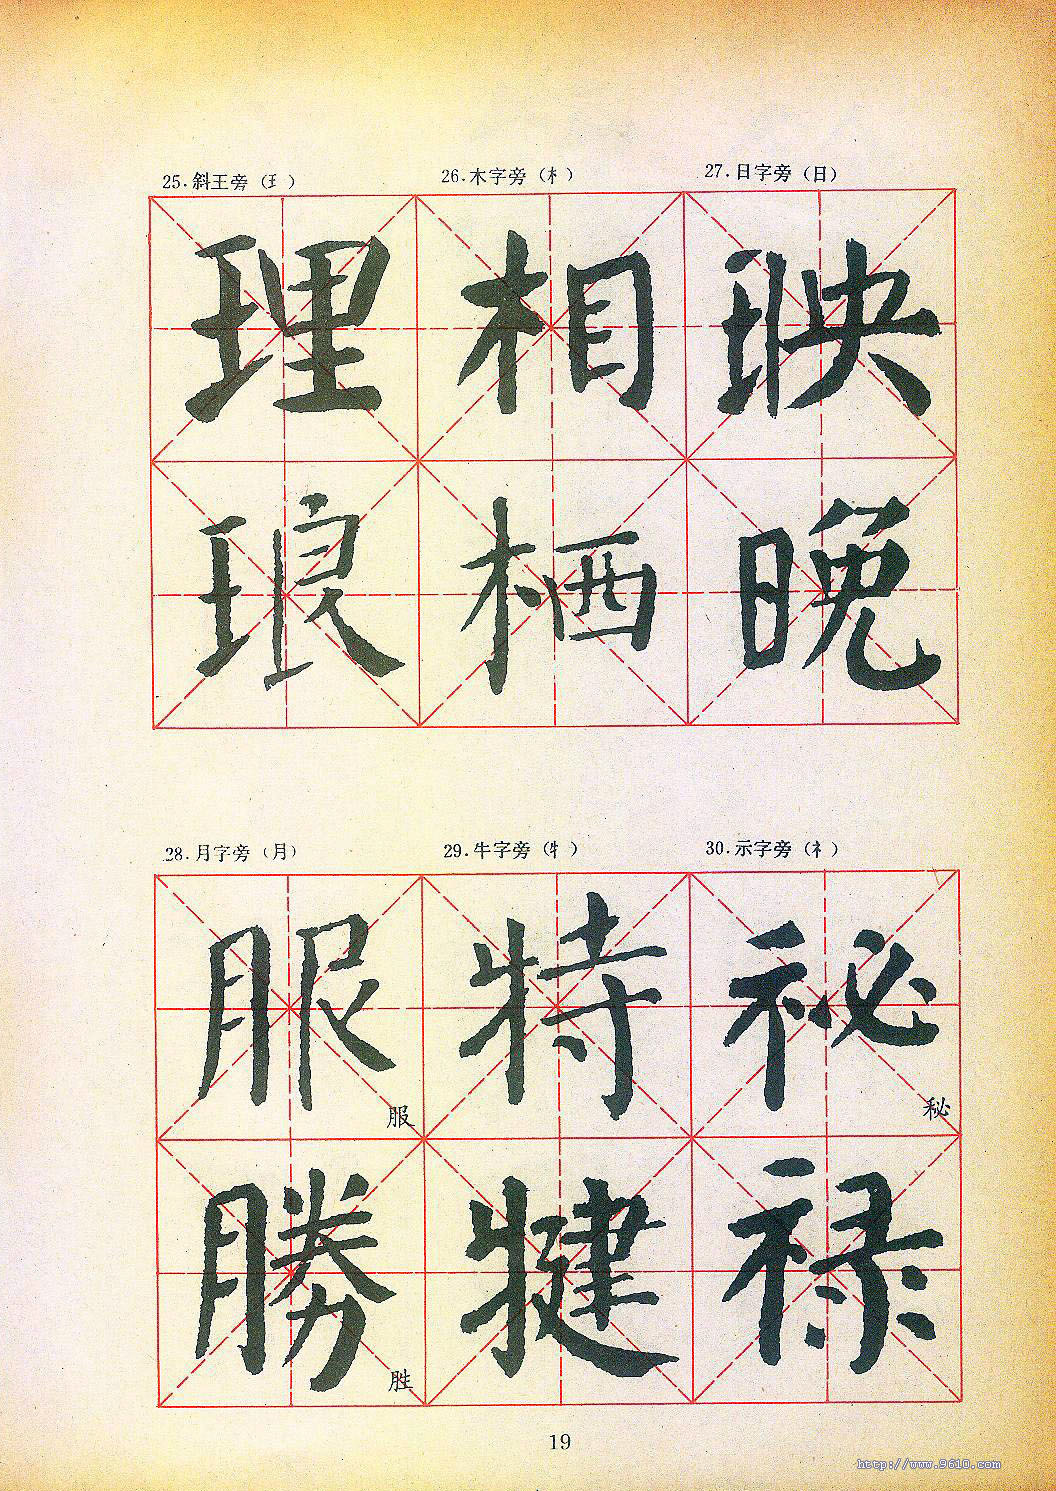 25.斜王旁（𤣩） 26.木字旁（木） 27.日字旁（日）
理 相 映
琅 栖 晚
28.月字旁（月） 29.牛字旁（牜） 30.示字旁（礻）
服 特 祕
服 秘
勝 犍 禄
胜
19
http://www.9610.com